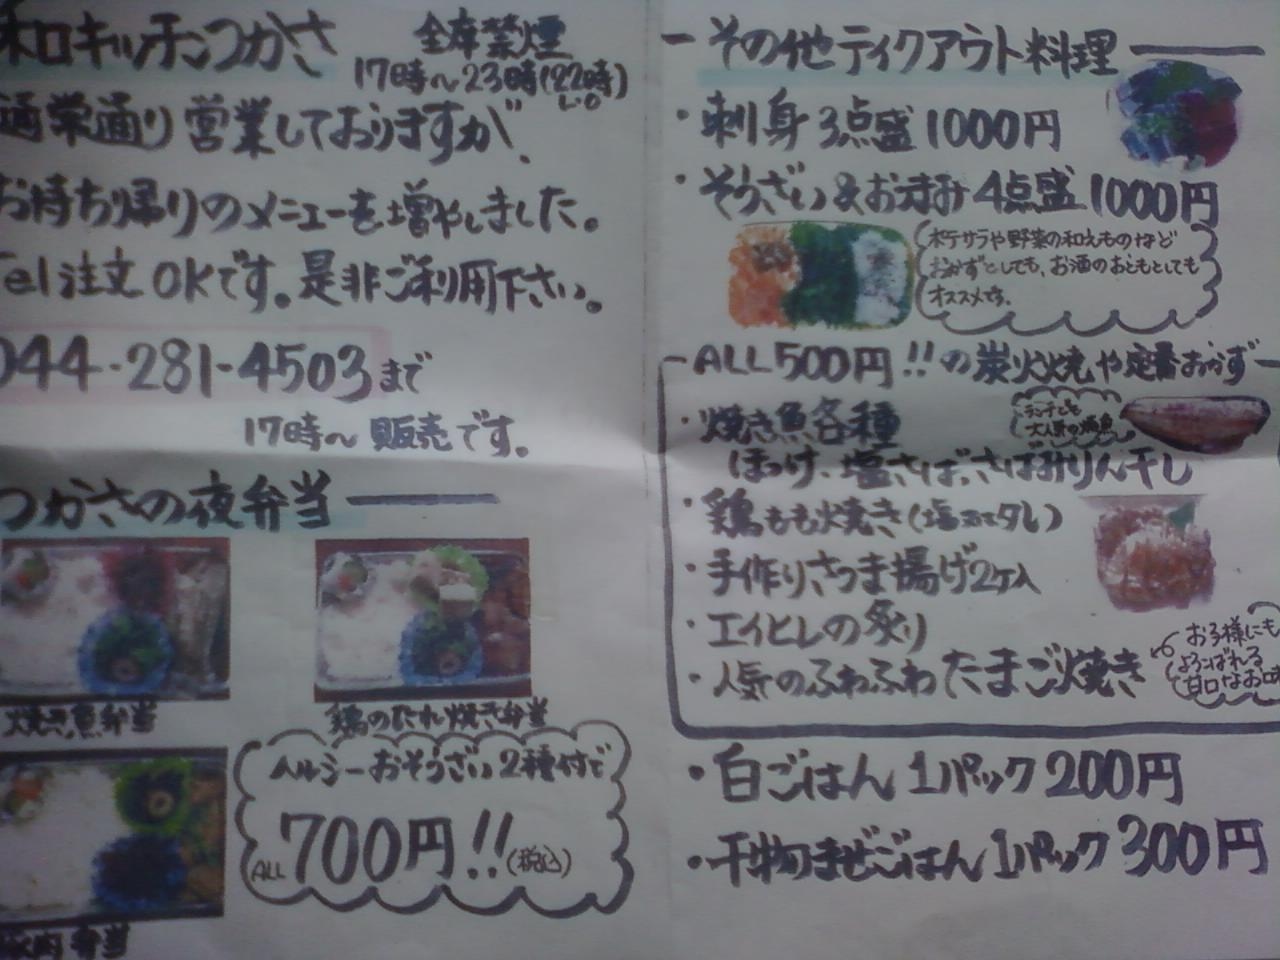 和口キッチンつかさ
全席禁煙
17時〜23時(22時)
L.O
通常通り営業しておりますが、
お持ち帰りのメニューを増やしました。
Tel注文OKです。是非ご利用下さい。
044-281-4503まで
17時〜販売です。
つかさの夜弁当
焼き魚弁当
鶏のたれ焼き弁当
豚肉弁当
ヘルシーおそうざい2種付で
ALL700円!!(税込)
その他テイクアウト料理
・刺身3点盛1000円
・そうざい&おつまみ4点盛1000円
ポテサラや野菜の和えものなど
おかずとしても、お酒のおともとしても
オススメです。
ALL500円!!の炭火焼や定番おかず
・焼き魚各種
ランチでも
大人気の焼魚
ほっけ、塩さば、さばみりん干し
・鶏もも焼き(塩orタレ)
・手作りさつま揚げ2ヶ入
・エイヒレの炙り
・人気のふわふわたまご焼き
お子様にも
よろこばれる
甘口なお味
・白ごはん1パック200円
・干物まぜごはん1パック300円